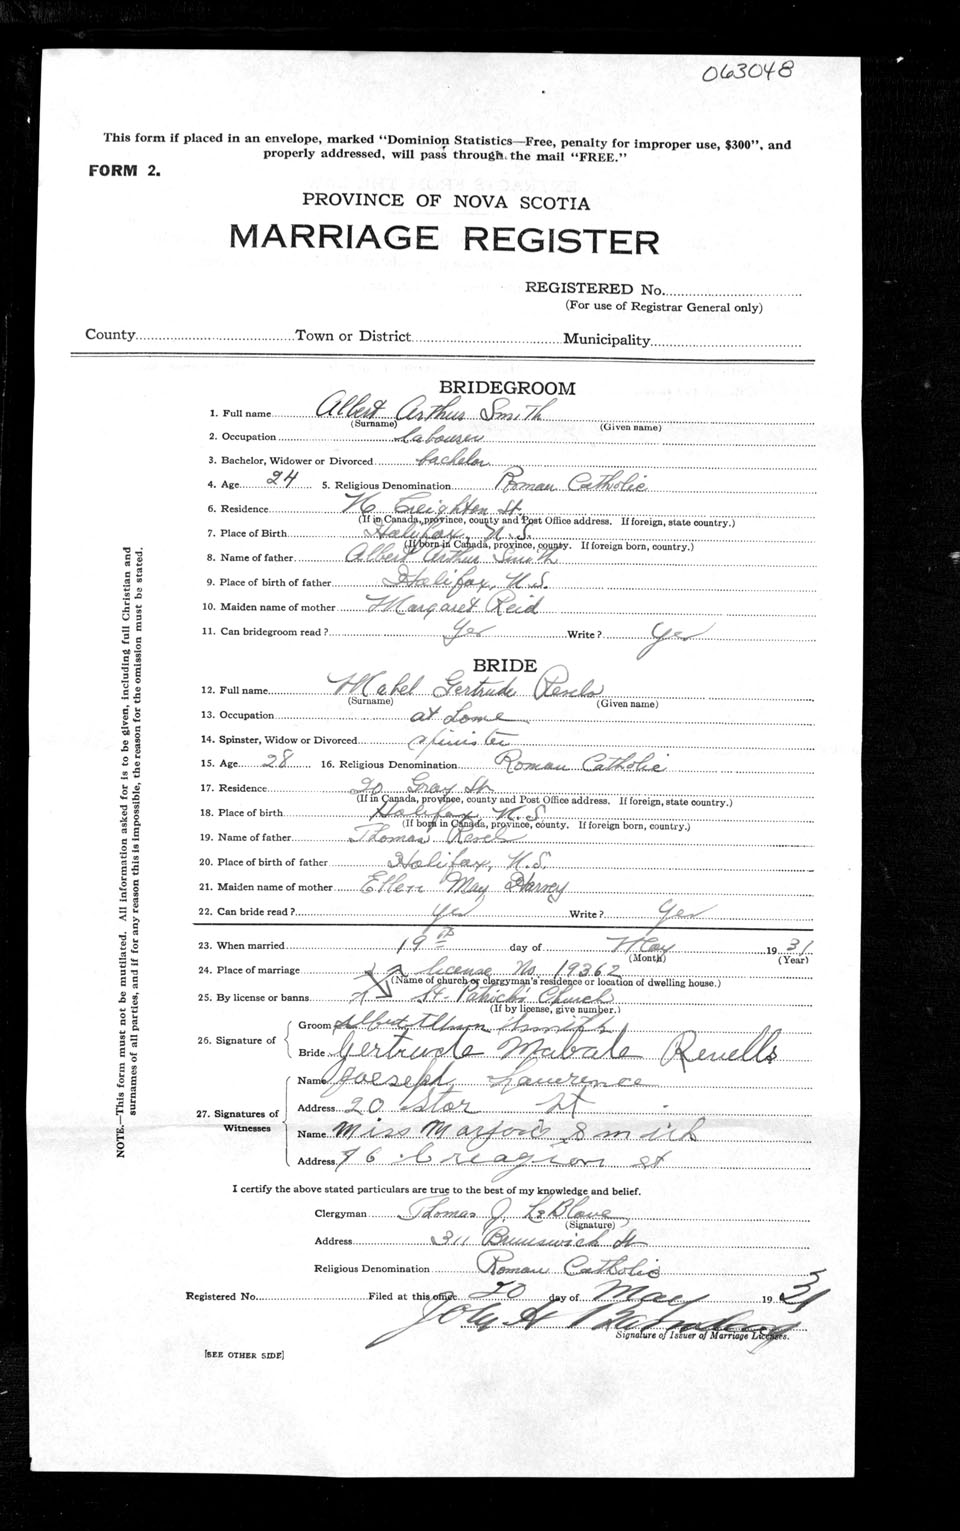 063048
This form if placed in an envelope, marked "Dominion Statistics—Free, penalty for improper use, $300", and
properly addressed, will pass through the mail "FREE."
FORM 2.
PROVINCE OF NOVA SCOTIA
MARRIAGE REGISTER
REGISTERED No.
(For use of Registrar General only)
County Town or District Municipality
BRIDEGROOM
1. Full name Albert Arthur Smith
(Surname) (Given name)
2. Occupation labourer
3. Bachelor, Widower or Divorced bachelor
4. Age 24 5. Religious Denomination Roman Catholic
6. Residence Creighton St.
(If in Canada, province, county and Post Office address. If foreign, state country.)
7. Place of Birth Halifax, N.S.
(If born in Canada, province, county. If foreign born, country.)
8. Name of father Albert Arthur Smith
9. Place of birth of father Halifax, N.S.
10. Maiden name of mother Margaret Reid
11. Can bridegroom read? Yes Write? Yes
BRIDE
12. Full name Mabel Gertrude
(Surname) (Given name)
13. Occupation at home
14. Spinster, Widow or Divorced spinster
15. Age 28 16. Religious Denomination Roman Catholic
17. Residence 20 St
(If in Canada, province, county and Post Office address. If foreign, state country.)
18. Place of birth Halifax N.S.
(If born in Canada, province, county. If foreign born, country.)
19. Name of father Thomas
20. Place of birth of father Halifax, N.S.
21. Maiden name of mother Ellen May Harvey
22. Can bride read? yes Write? Yes
23. When married 19th day of May 1931
(Month) (Year)
24. Place of marriage license No. 19362
(Name of church or clergyman's residence or location of dwelling house.)
25. By license or banns St. Patrick's Church
(If by license, give number.)
26. Signature of
Groom Albert Smith
Bride Gertrude Mabale Revells
27. Signatures of
Witnesses
Name Joeseph Lawrence
Address 20 Star St
Name Miss Marjorie Smith
Address 76 Creagion st
I certify the above stated particulars are true to the best of my knowledge and belief.
Clergyman Thomas J. LeBlanc
(Signature)
Address 311 Brunswick St
Religious Denomination Roman Catholic
Registered No. Filed at this office 20 day of May 1931
John A
Signature of Issuer of Marriage Licenses.
[SEE OTHER SIDE]
NOTE.—This form must not be mutilated. All information asked for is to be given, including full Christian and
surnames of all parties, and if for any reason this is impossible, the reason for the omission must be stated.